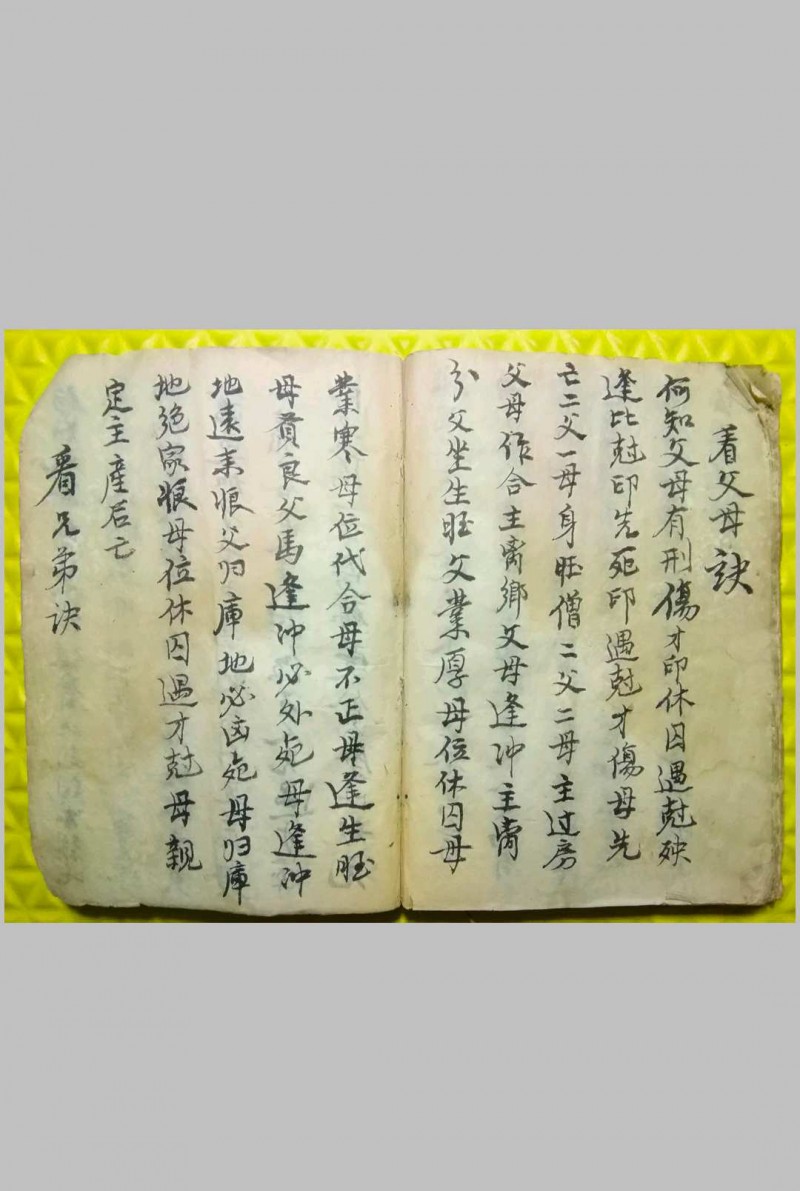 看父母訣
何知父母有刑傷才印休囚遇尅殃
逢比尅印先死印遇尅才傷母先
亡二父一母身旺僧二父二母主过房
父母作合主离鄉父母逢冲主离
分父坐生旺父業厚母位休囚母
業寒母位代合母不正母逢生旺
母賁良父馬逢冲必外死母逢冲
地遠未狼父归庫地必凶死母归庫
地绝家狼母位休囚遇才尅母親
定主産后亡
看兄弟诀